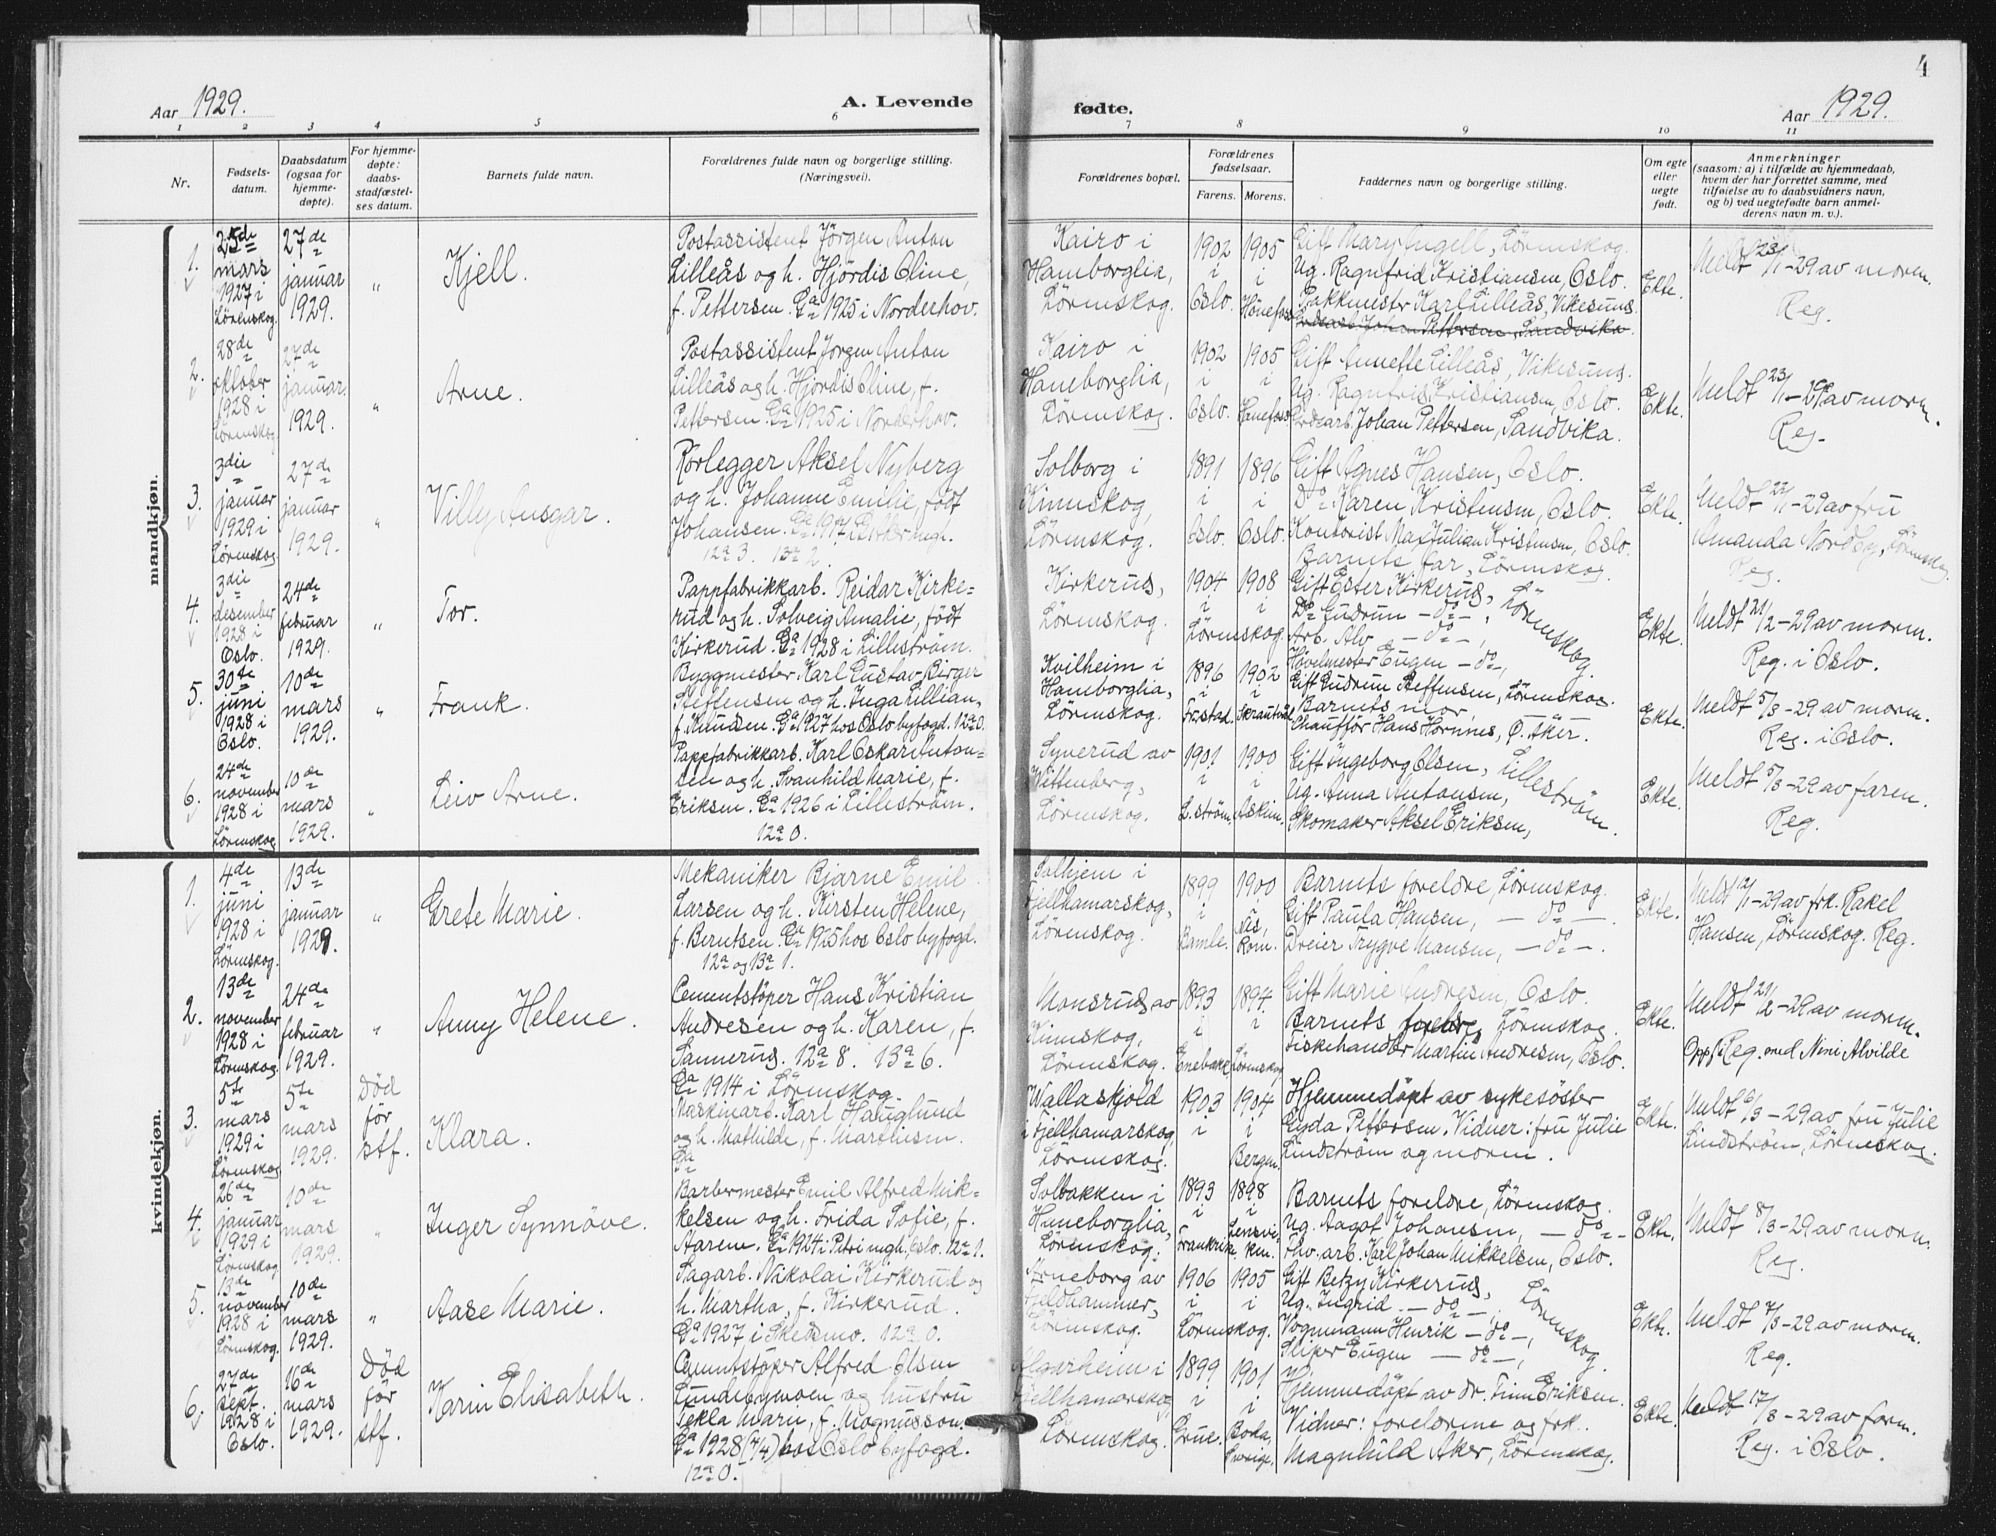 4
Aar 1929.
A. Levende
fødte.
Aar 1929.
1 2 3 4 5 6 7 8 9 10 11
Nr.
Fødsels-
datum.
Daabsdatum
(ogsaa for
hjemme-
døpte).
For hjemme-
døpte:
daabs-
stadfæstel-
ses datum.
Barnets fulde navn.
Forældrenes fulde navn og borgerlige stilling.
(Næringsvei).
Forældrenes bopæl.
Forældrenes
fødselsaar.
Farens. Morens.
Faddernes navn og borgerlige stilling.
Om egte
eller
uegte
født.
Anmerkninger
(saasom: a) i tilfælde av hjemmedaab,
hvem der har forrettet samme, med
tilføielse av to daabsvidners navn,
og b) ved uegtefødte barn anmel-
derens navn m. v.).
mandkjøn.
1.
mars
1927 i
Lørenskog.
27de
januar
1929.
"
Kjell.
Postassistent Jörgen Anton
Lilleås og h. Hjördis Oline,
f. Pettersen. Ga 1925 i Norderhov.
Kairo i
Haneborglia,
Lörenskog.
1902
i
Oslo.
1905
i
Hönefoss
Gift Mary Engell, Lörenskog.
Ug. Ragnfrid Kristiansen, Oslo.
Pakkmester Karl Lilleås, Vikesund.
Johan Pettersen, Sandvika.
Ekte.
Meldt 23/1-29 av moren.
Reg.
2.
28de
oktober
1928 i
Lörenskog.
27de
januar
1929.
"
Arne.
Postassistent Jörgen Anton
Lilleås og h. Hjördis Oline, f.
Pettersen. Ga 1925 i Norderhov.
Kairo i
Haneborglia,
Lörenskog.
1902
i
Oslo.
1905
i
Hönefoss
Gift Annette Lilleås, Vikesund.
Ug. Ragnfrid Kristiansen, Oslo.
Johan Pettersen, Sandvika.
Ekte.
Meldt 23/1-29 av moren.
Reg.
3.
3die
januar
1929 i
Lörenskog
27de
januar
1929.
"
Villy Ansgar.
Rörlegger Aksel Nyberg
og h. Johanne Emilie, født
Johansen. Ga 1917 i
12a 3. 13a 2.
Solborg i
Kinnskog,
Lörenskog.
1891
i
Oslo.
1896
i
Oslo.
Gift Agnes Hansen, Oslo.
Do Karen Kristensen, Oslo.
Kontorist Max Julian Kristensen, Oslo.
Barnets far, Lörenskog.
Ekte.
Meldt 22/1-29 av fru
Amanda Nordby, Lörenskog.
Reg.
4.
3die
desember
1928 i
Oslo.
24de
februar
1929.
"
Tor.
Pappfabrikkarb. Reidar Kirke-
rud og h. Solveig Amalie, født
Kirkerud. Ga 1928 i Lilleström.
Kirkerud,
Lörenskog.
1904
i
Lörenskog.
1908
i
Gift Ester Kirkerud,
Do Gudrun -do-,
Arb. Alv -do-,
Hövelmester Eugen -do-,
Lörenskog
Ekte.
Meldt 21/2-29 av moren.
Reg. i Oslo.
5.
30te
juni
1928 i
Oslo.
10de
mars
1929.
"
Frank.
Byggmester Karl Gustav Birger
Steffensen og h. Inga Lillian,
f. Knudsen. Ga 1927 hos Oslo byfogd. 12a 0.
Kvilheim i
Haneborglia,
Lörenskog.
1896
i
Fr.stad.
1902
i
Gift Gudrun Steffensen, Lörenskog.
Barnets mor,
Chauffør Hans Hornnes, Ø. Aker.
Ekte.
Meldt 5/3-29 av moren.
Reg. i Oslo.
6.
24de
november
1928 i
Lörenskog
10de
mars
1929.
"
Leiv Arne.
Pappfabrikkarb. Karl Oskar Anton-
sen og h. Svanhild Marie, f.
Eriksen. Ga 1926 i Lilleström.
12a 0.
Syverud av
Wittenberg,
Lörenskog.
1901
i
L.ström.
1900
i
Askim.
Gift Ingeborg Olsen,
Ug. Anna Antonsen,
Skomaker Aksel Eriksen,
Lilleström.
Ekte.
Meldt 5/3-29 av faren.
Reg.
kvindekjøn.
1.
4de
juni
1928 i
Lörenskog.
13de
januar
1929.
"
Grete Marie.
Mekaniker Bjarne Emil
Larsen og h. Kirsten Helene,
f. Berntsen. Ga 1925 hos Oslo byfogd.
12a og 13a 1.
Solhjem i
Fjellhamarskog,
Lörenskog.
1899
i
Bamle.
1900
Ås,
Rom.
Barnets foreldre, Lörenskog.
Gift Paula Hansen, -do-.
Dreier Trygve Hansen, -do-.
Ekte.
Meldt 12/1-29 av frk. Rakel
Hansen, Lörenskog. Reg.
2.
13de
november
1928 i
Lörenskog.
24de
februar
1929.
"
Anny Helene.
Cementstöper Hans Kristian
Andresen og h. Karen, f.
Sannerud. 12a 8. 13a 6.
Ga 1914 i Lörenskog.
Monsrud av
Kinnskog,
Lörenskog.
1893
i
Enebakk
1894
i
Lörenskog
Gift Marie Andresen, Oslo.
Barnets foreldre, Lörenskog.
Fiskehandler Martin Andresen, Oslo.
Ekte.
Meldt 21/2-29 av moren.
Reg. med Nini Alvilde
3.
5te
mars
1929 i
Lörenskog
5te
mars
1929.
Död
för
stf.
Klara.
Maskinarb. Karl Hauglund
og h. Mathilde, f. Marthinsen.
Ga
Wallaskjold
i Fjellhamarskog,
Lörenskog.
1903
i
1904
i
Bergen.
Hjemmedöpt av sykesöster
Gyda Pettersen. Vidner: fru Julie
Lindström og moren.
Ekte.
Meldt 6/3-29 av fru Julie
Lindström, Lörenskog.
4.
26de
januar
1929 i
Lörenskog
10de
mars
1929.
"
Inger Synnöve.
Barbermester Emil Alfred Mik-
kelsen og h. Frida Sofie, f.
Aarem. Ga 1924 i Petri mgh. Oslo. 12a 1.
Solbakken i
Haneborglia,
Lörenskog.
1893
i
Frankrike
1898
i
Lensvi-
ken.
Barnets foreldre, Lörenskog.
Ug. Aagot Johansen, -do-
arb. Karl Johan Mikkelsen, Oslo.
Ekte.
Meldt 8/3-29 av moren.
Reg.
5.
13de
november
1928 i
Lörenskog.
10de
mars
1929.
"
Aase Marie.
Sagarb. Nikolai Kirkerud og
h. Martha, f. Kirkerud.
Ga 1927 i Skedsmo. 12a 0.
Arneborg av
Fjeldhammer,
Lörenskog.
1906
i
Lörenskog.
1905
i
Gift Betzy Kirkerud,
Ug. Ingrid -do-,
Vognmann Henrik -do-,
Sliper Eugen -do-,
Lörenskog
Ekte.
Meldt 7/3-29 av moren.
Reg.
6.
27de
sept.
1928 i
Oslo.
16de
mars
1929.
Död
för
stf.
Karin Elisabeth.
Cementstöper Alfred Olsen
Lundebymoen og hustru
Tekla Maria, f. Magnusson.
Ga 1928 (4/4) hos Oslo byfogd.
12a 0.
i
Fjellhamarskog,
Lörenskog.
1899
i
Grue.
1901
i
Boda,
Sverige.
Hjemmedöpt av dr. Finn Eriksen.
Vidner: foreldrene og frk.
Magnhild Aker, Lörenskog.
Ekte.
Meldt 17/3-29 av faren.
Reg. i Oslo.